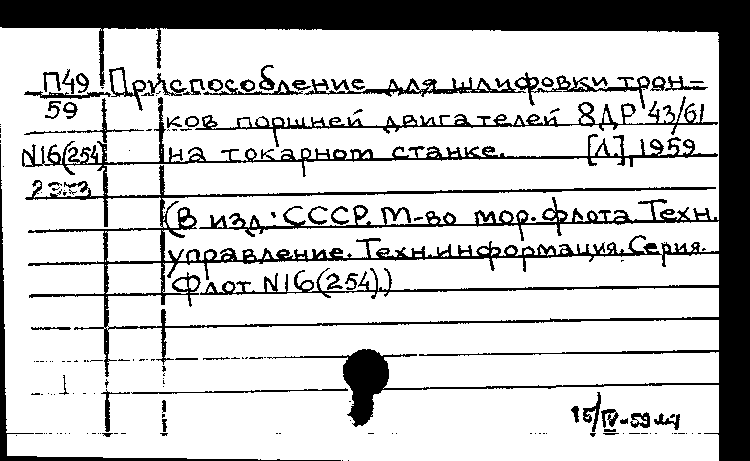 П49
59
N16(254)
2 экз
Приспособление для шлифовки трон-
ков поршней двигателей 8ДР 43/61
на токарном станке. [Л.], 1959
(В изд: СССР. М-во мор. флота. Техн.
управление. Техн. информация. Серия.
Флот. N16(254).)
15/IV-59